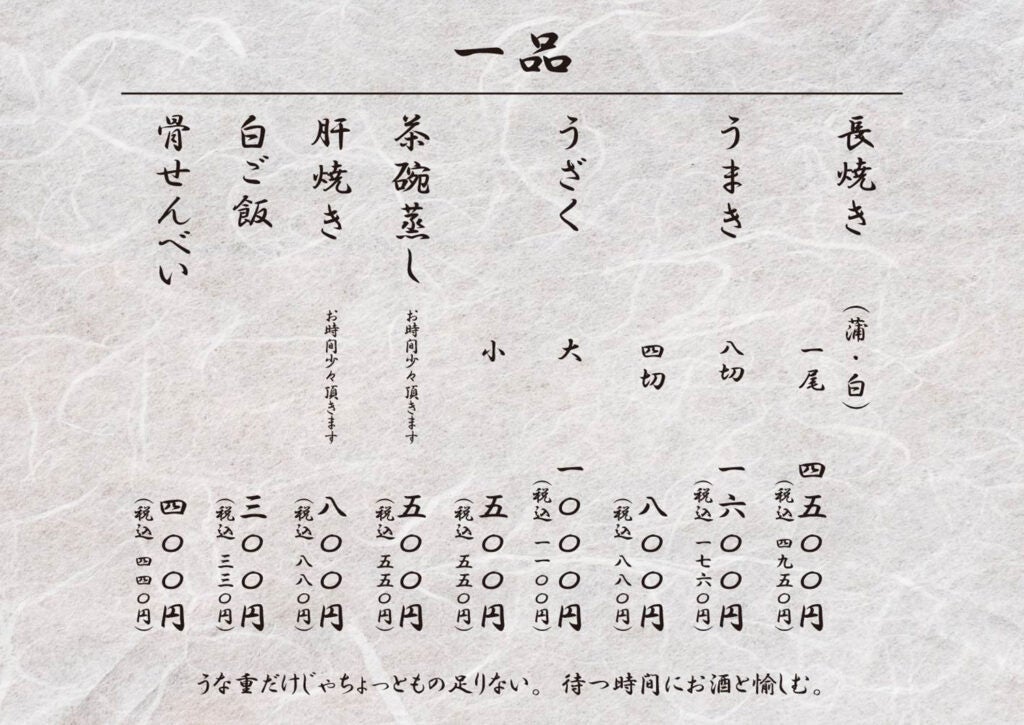 一品
長焼き（蒲・白）
一尾 四五〇〇円
（税込 四九五〇円）
うまき 八切 一六〇〇円
（税込 一七六〇円）
四切 八〇〇円
（税込 八八〇円）
うざく 大 一〇〇〇円
（税込 一一〇〇円）
小 五〇〇円
（税込 五五〇円）
茶碗蒸し お時間少々頂きます 五〇〇円
（税込 五五〇円）
肝焼き お時間少々頂きます 八〇〇円
（税込 八八〇円）
白ご飯 三〇〇円
（税込 三三〇円）
骨せんべい 四〇〇円
（税込 四四〇円）
うな重だけじゃちょっともの足りない。 待つ時間にお酒と愉しむ。